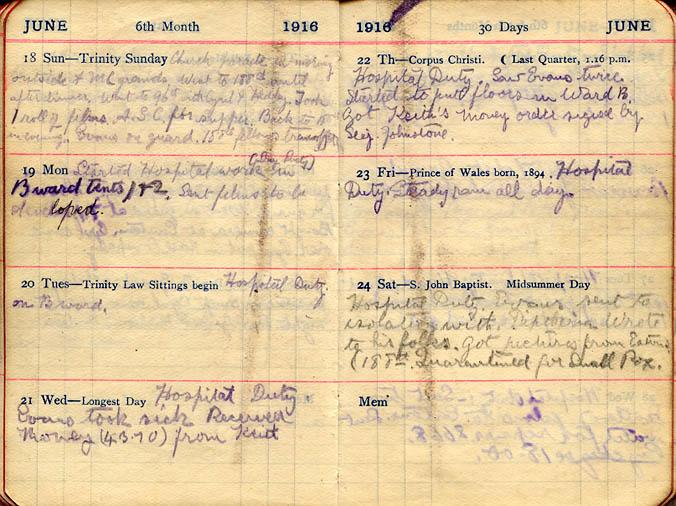 JUNE 6th Month 1916
18 Sun—Trinity Sunday Church parade in morning
outside & grands. Went to 188th until
after dinner. Went to 96th with Cyril & Took
1 roll of films. A.S.C. for supper. Back to
evening. Evans on guard. 188th fellows
19 Mon Started Hospital work in
(Day Duty)
B ward tents 1 & 2. Sent films to be
deve
loped.
20 Tues—Trinity Law Sittings begin Hospital Duty
on B ward.
21 Wed—Longest Day Hospital Duty
Evans took sick Received
Money (43.70) from Keith
1916 30 Days JUNE
22 Th—Corpus Christi. ☾ Last Quarter, 1.16 p.m.
Hospital Duty. Saw Evans twice.
Started to put floors in Ward B.
Got Keith's money order signed by
Serg Johnstone.
23 Fri—Prince of Wales born, 1894. Hospital
Duty. Steady rain all day.
24 Sat—S. John Baptist. Midsummer Day
Hospital Duty Evans sent to
isolation with Diptheria Wrote
to his folks. Got pictures from Eaton's
(188th Quarantined for Small Pox.
Mem